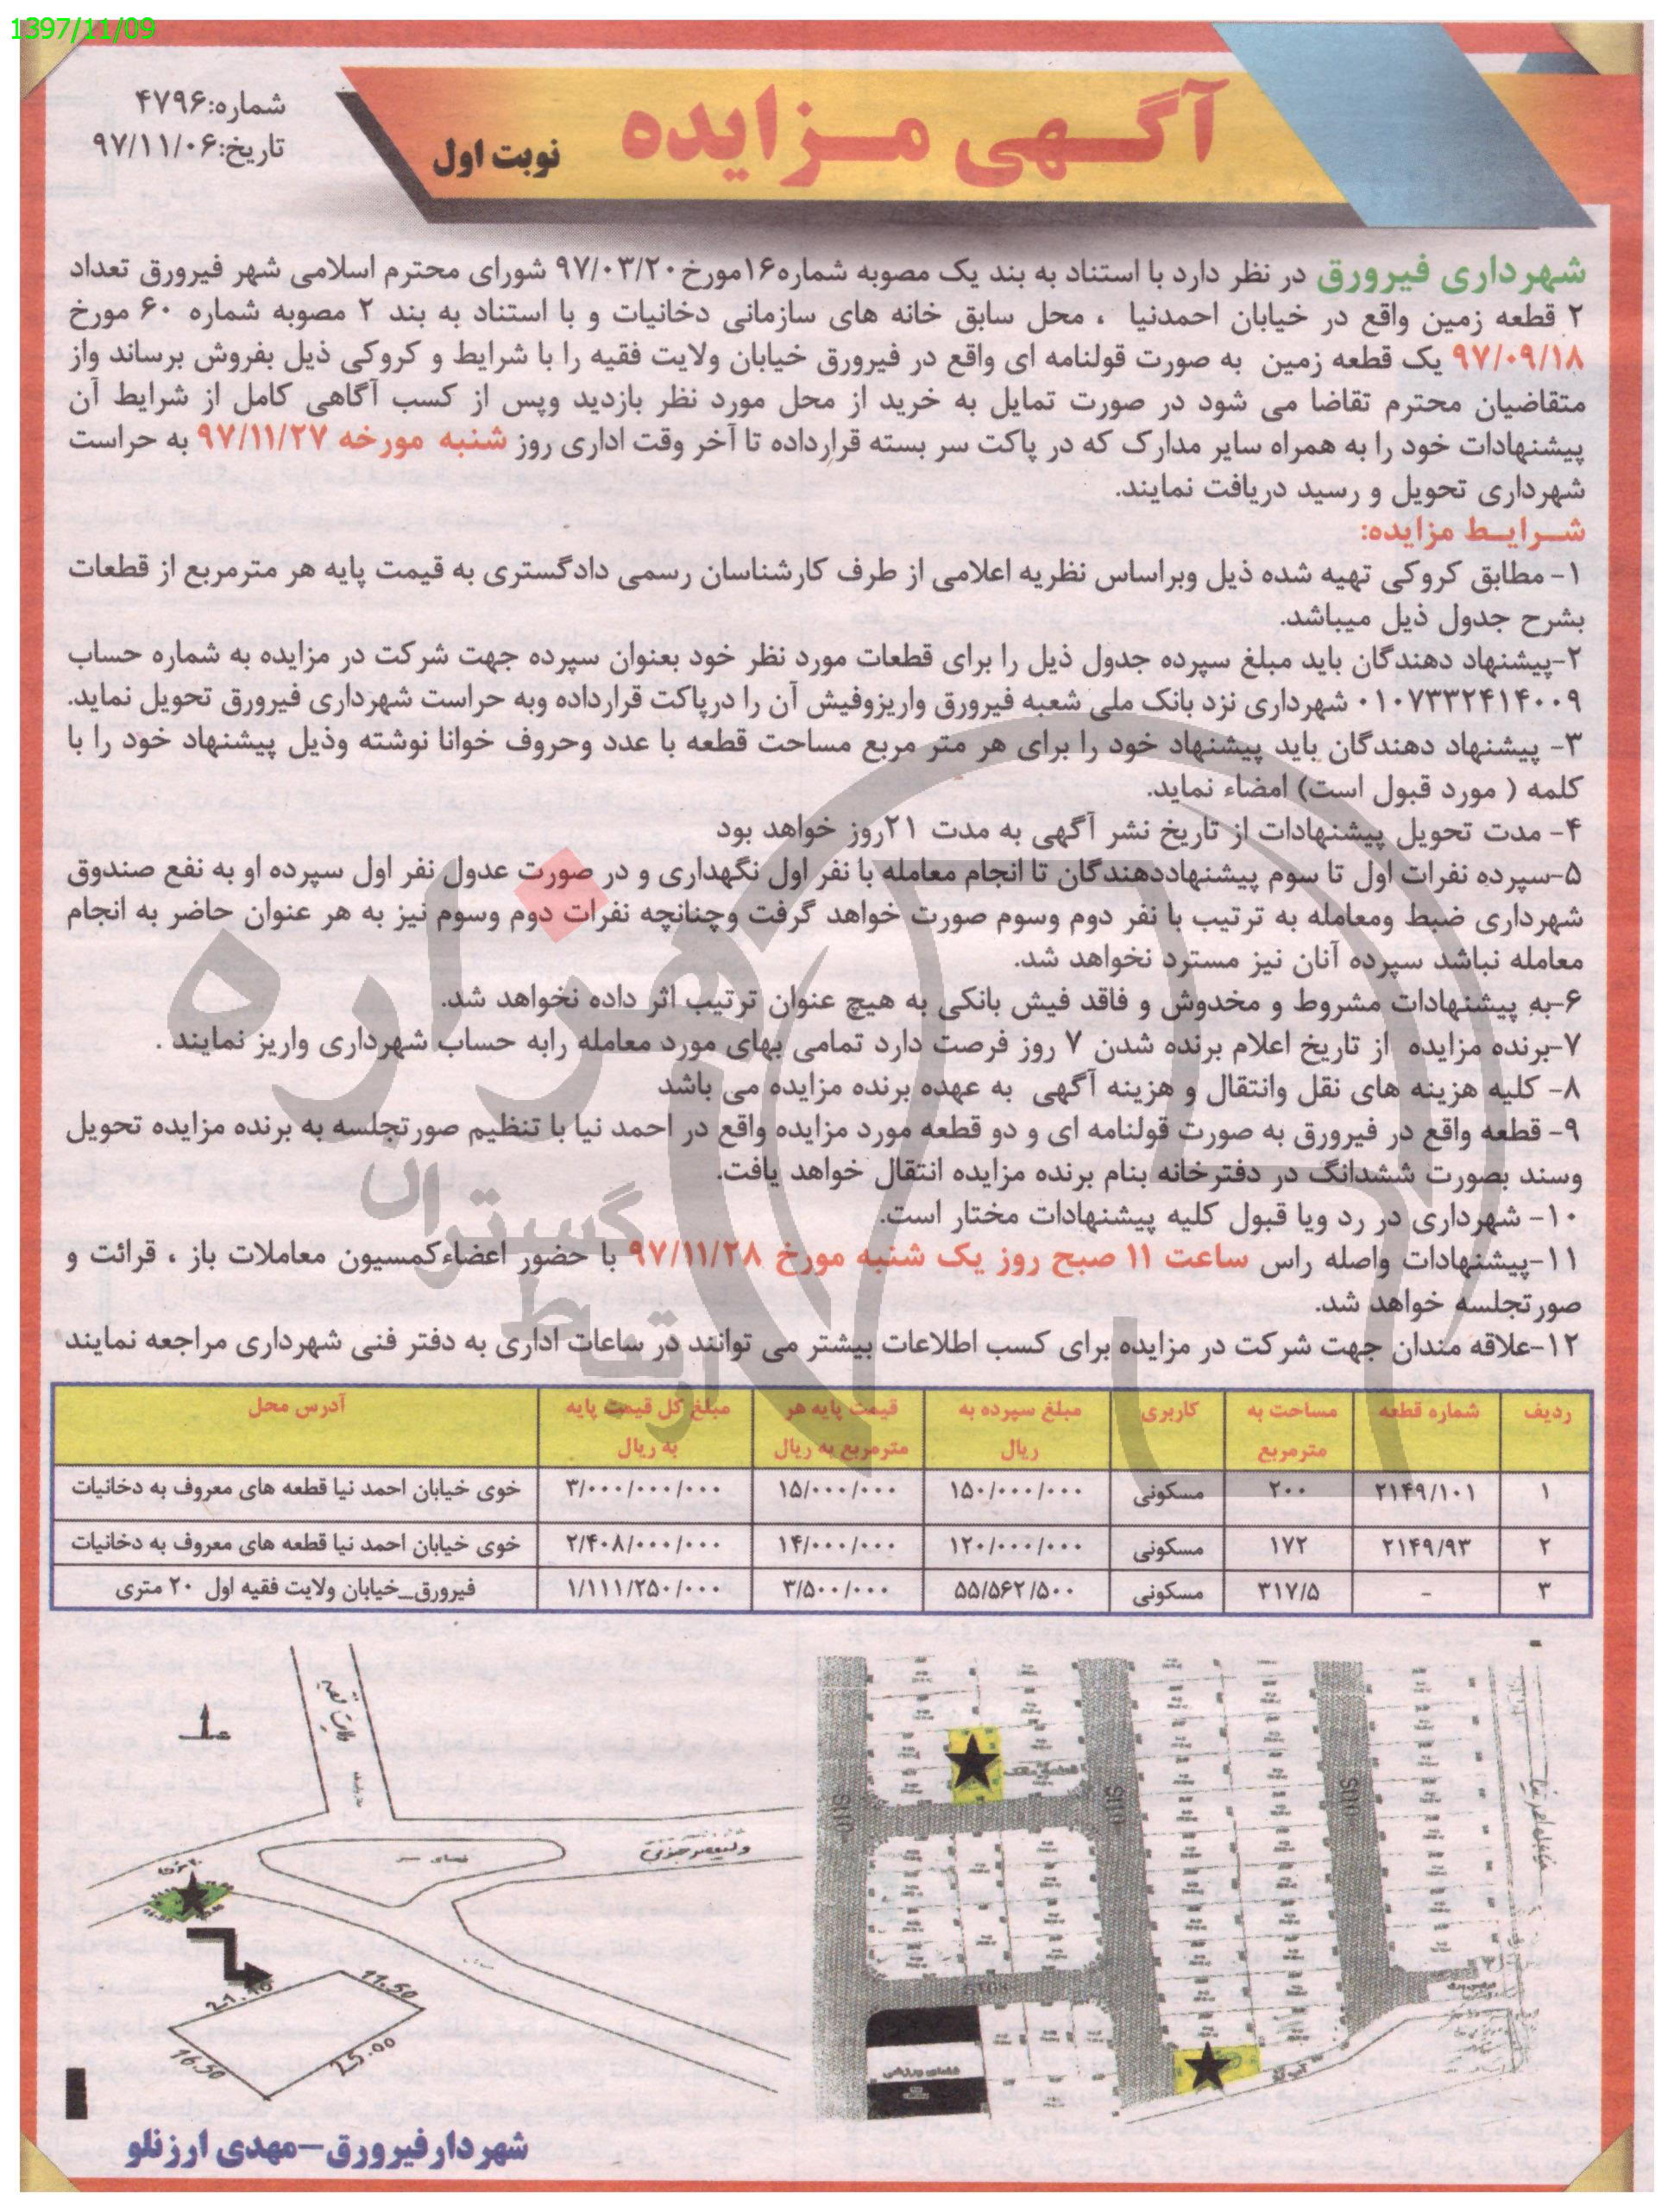 1397/11/09
آگهی مزایده
نوبت اول
شماره:۴۷۹۶
تاریخ:۹۷/۱۱/۰۶
شهرداری فیرورق در نظر دارد با استناد به بند یک مصوبه شماره۱۶مورخ۹۷/۰۳/۲۰ شورای محترم اسلامی شهر فیرورق تعداد
۲ قطعه زمین واقع در خیابان احمدنیا ، محل سابق خانه های سازمانی دخانیات و با استناد به بند ۲ مصوبه شماره ۶۰ مورخ
۹۷/۰۹/۱۸ یک قطعه زمین به صورت قولنامه ای واقع در فیرورق خیابان ولایت فقیه را با شرایط و کروکی ذیل بفروش برساند واز
متقاضیان محترم تقاضا می شود در صورت تمایل به خرید از محل مورد نظر بازدید وپس از کسب آگاهی کامل از شرایط آن
پیشنهادات خود را به همراه سایر مدارک که در پاکت سر بسته قرارداده تا آخر وقت اداری روز شنبه مورخه ۹۷/۱۱/۲۷ به حراست
شهرداری تحویل و رسید دریافت نمایند.
شرایط مزایده:
۱- مطابق کروکی تهیه شده ذیل وبراساس نظریه اعلامی از طرف کارشناسان رسمی دادگستری به قیمت پایه هر مترمربع از قطعات
بشرح جدول ذیل میباشد.
۲-پیشنهاد دهندگان باید مبلغ سپرده جدول ذیل را برای قطعات مورد نظر خود بعنوان سپرده جهت شرکت در مزایده به شماره حساب
۰۱۰۷۳۳۲۴۱۴۰۰۹ شهرداری نزد بانک ملی شعبه فیرورق واریزوفیش آن را درپاکت قرارداده وبه حراست شهرداری فیرورق تحویل نماید.
۳- پیشنهاد دهندگان باید پیشنهاد خود را برای هر متر مربع مساحت قطعه با عدد وحروف خوانا نوشته وذیل پیشنهاد خود را با
کلمه ( مورد قبول است) امضاء نماید.
۴- مدت تحویل پیشنهادات از تاریخ نشر آگهی به مدت ۲۱روز خواهد بود
۵-سپرده نفرات اول تا سوم پیشنهاددهندگان تا انجام معامله با نفر اول نگهداری و در صورت عدول نفر اول سپرده او به نفع صندوق
شهرداری ضبط ومعامله به ترتیب با نفر دوم وسوم صورت خواهد گرفت وچنانچه نفرات دوم وسوم نیز به هر عنوان حاضر به انجام
معامله نباشد سپرده آنان نیز مسترد نخواهد شد.
۶-به پیشنهادات مشروط و مخدوش و فاقد فیش بانکی به هیچ عنوان ترتیب اثر داده نخواهد شد.
۷-برنده مزایده از تاریخ اعلام برنده شدن ۷ روز فرصت دارد تمامی بهای مورد معامله رابه حساب شهرداری واریز نمایند .
۸- کلیه هزینه های نقل وانتقال و هزینه آگهی به عهده برنده مزایده می باشد
۹- قطعه واقع در فیرورق به صورت قولنامه ای و دو قطعه مورد مزایده واقع در احمد نیا با تنظیم صورتجلسه به برنده مزایده تحویل
وسند بصورت ششدانگ در دفترخانه بنام برنده مزایده انتقال خواهد یافت.
۱۰- شهرداری در رد ویا قبول کلیه پیشنهادات مختار است.
۱۱-پیشنهادات واصله راس ساعت ۱۱ صبح روز یک شنبه مورخ ۹۷/۱۱/۲۸ با حضور اعضاءکمسیون معاملات باز ، قرائت و
صورتجلسه خواهد شد.
۱۲-علاقه مندان جهت شرکت در مزایده برای کسب اطلاعات بیشتر می توانند در ساعات اداری به دفتر فنی شهرداری مراجعه نمایند
ردیف شماره قطعه مساحت به مترمربع کاربری مبلغ سپرده به ریال قیمت پایه هر مترمربع به ریال مبلغ کل قیمت پایه به ریال آدرس محل
۱ ۲۱۴۹/۱۰۱ ۲۰۰ مسکونی ۱۵۰/۰۰۰/۰۰۰ ۱۵/۰۰۰/۰۰۰ ۳/۰۰۰/۰۰۰/۰۰۰ خوی خیابان احمد نیا قطعه های معروف به دخانیات
۲ ۲۱۴۹/۹۳ ۱۷۲ مسکونی ۱۲۰/۰۰۰/۰۰۰ ۱۴/۰۰۰/۰۰۰ ۲/۴۰۸/۰۰۰/۰۰۰ خوی خیابان احمد نیا قطعه های معروف به دخانیات
۳ - ۳۱۷/۵ مسکونی ۵۵/۵۶۲/۵۰۰ ۳/۵۰۰/۰۰۰ ۱/۱۱۱/۲۵۰/۰۰۰ فیرورق_خیابان ولایت فقیه اول ۲۰ متری
هزاره
ارتباط
گستران
21.10
11.50
16.50
25.00
فضای ورزشی
شهردارفیرورق-مهدی ارزنلو